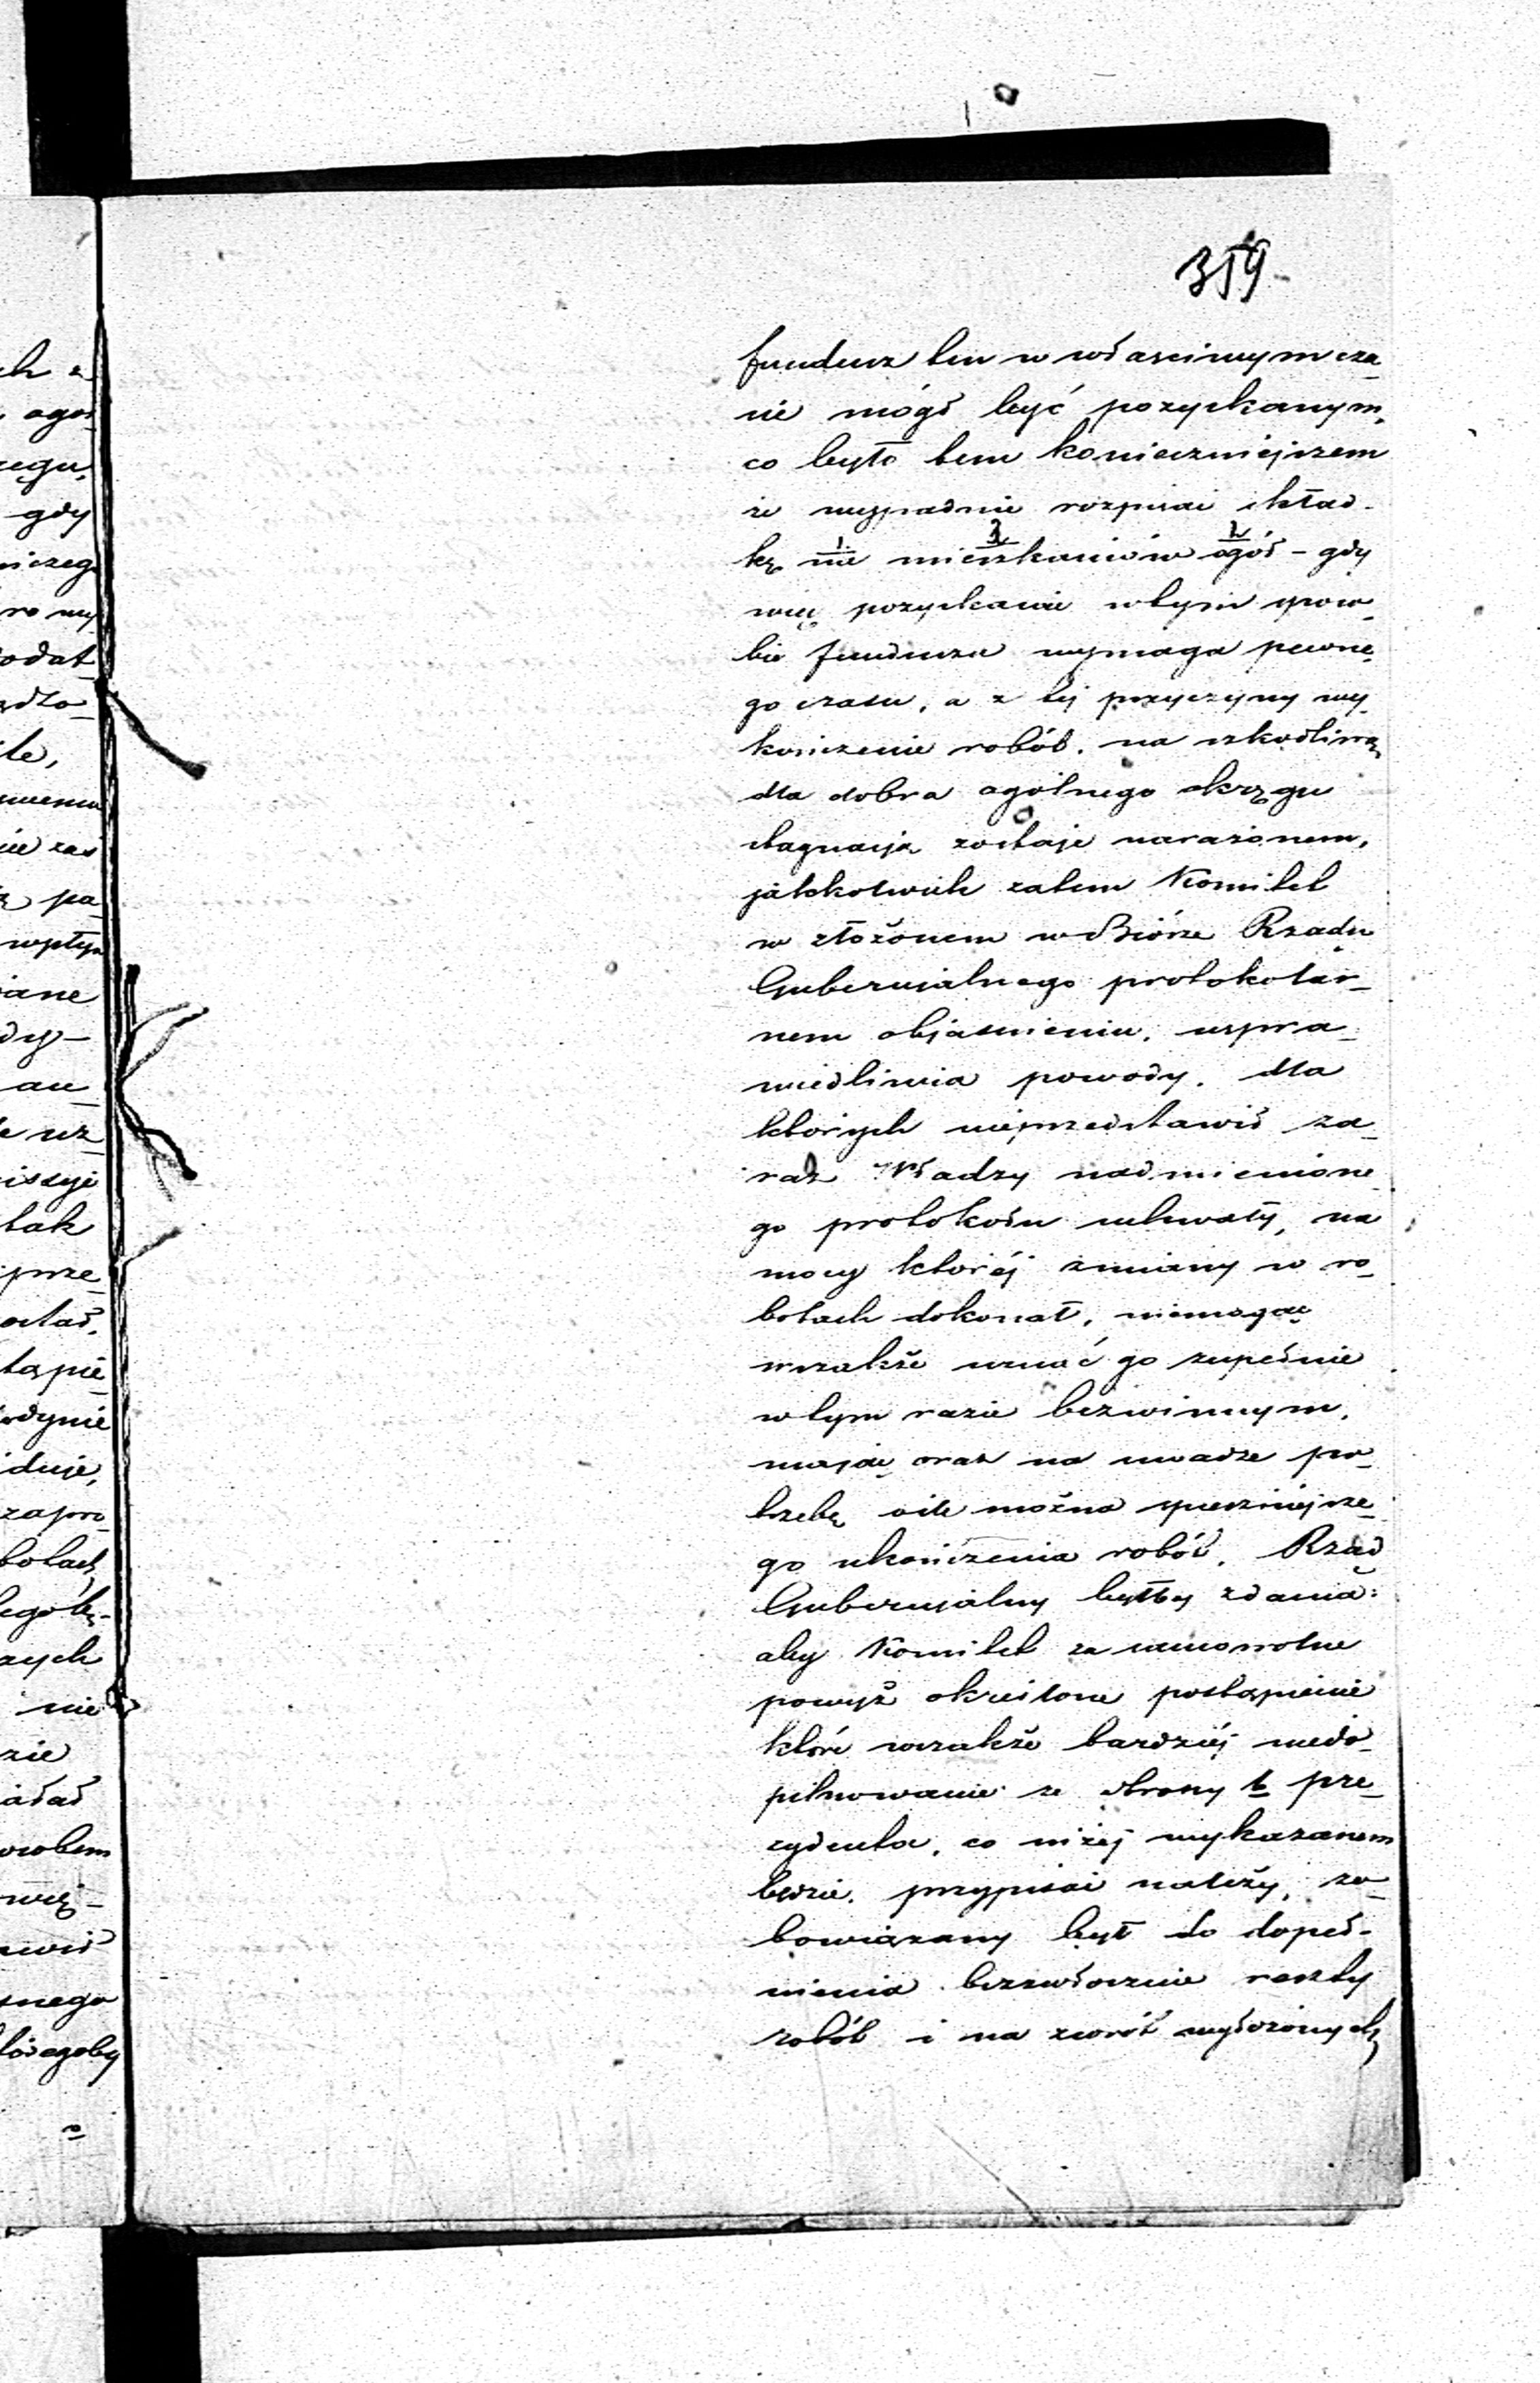 359
fundusz ten w właściwym cza_
sie mógł być pozyskanym,
co było tem konieczniejszem
że wypadnie rozpisać skład-
kę na mieszkańców ogół - gdy
więc pozyskanie w tym sposo_
bie funduszu wymaga pewne_
go czasu, a z tej przyczyny wy_
kończenie robót, na szkodliwą
dla dobra ogólnego okręgu
stagnacją zostaje narażonem,
jakkolwiek zatem Komitet
w złożonem w Biórze Rządu
Gubernialnego protokolar_
nem objaśnieniu, uspra_
wiedliwia powody, dla
których nieprzedstawił za_
raz Władzy nadmienione_
go protokółu uchwały, na
mocy której zmiany w ro_
botach dokonał, niemogąc
wszakże uznać go zupełnie
w tym razie bezwinnym,
mając oraz na uwadze po_
trzebę o ile można spieszniejsze_
go ukończenia robót, Rząd
Gubernialny byłby zdania:
aby Komitet za samowolne
powyż określone postąpienie
które wszakże bardziej niedo_
pilnowanie ze strony b. pre_
zydenta, co niżej wykazanem
będzie, przypisać należy, zo_
bowiązany był do dopeł-
nienia bezzwłocznie reszty
robót i na zwrót wyłożonych
ch z
gdy
niczego
odat
le,
ie zaś
pa_
wpły
ane
dy-
au_
uz_
issyi
tak
prze_
tąpie_
dynie
duje,
zapro_
botach
zych
nie
zie
wię-
snego